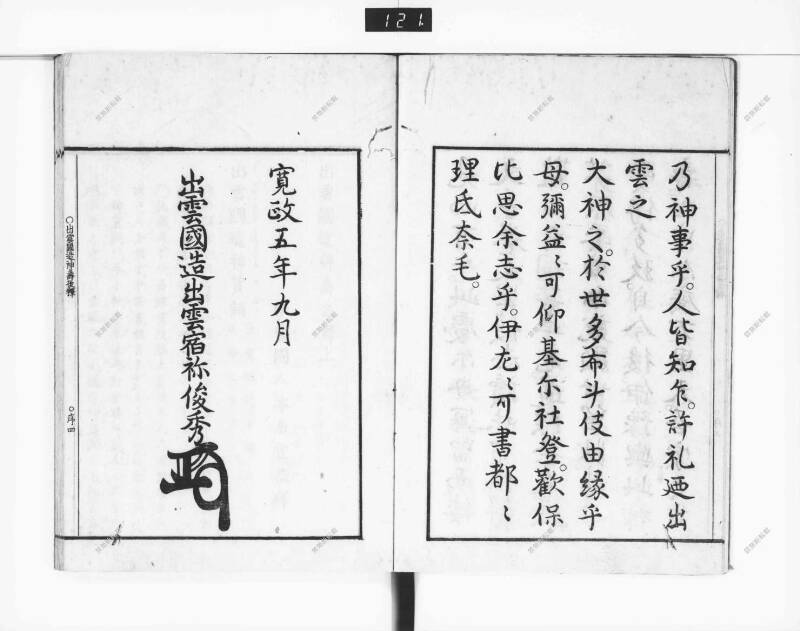 121
乃神事乎。人皆知乍。許礼廼出
雲之
大神之。於世多布斗伎由緣乎
母。彌益〻可仰基尓社登。歡保
比思余志乎。伊尤〻可書都〻
理氐奈毛。
寛政五年九月
出雲國造出雲宿祢俊秀
○出雲國造神壽後釋
○序四
禁無断転載